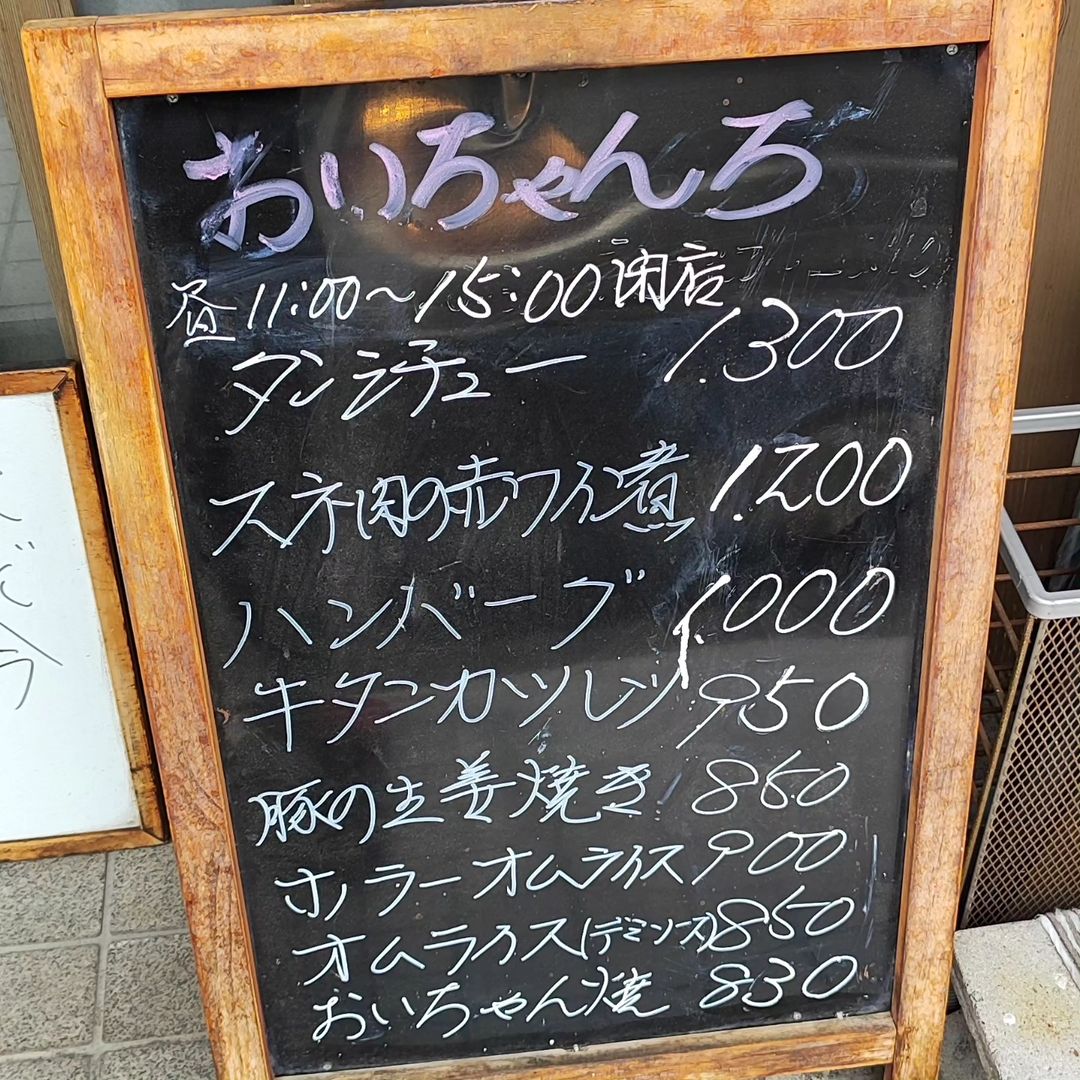 おいちゃんち
昼 11:00〜15:00 閉店
タンシチュー 1.300
スネ肉の赤ワイン煮 1.200
ハンバーグ 1.000
牛タンカツレツ 950
豚の生姜焼き 850
オムライス 900
オムライス(デミソース) 850
おいちゃん焼 830